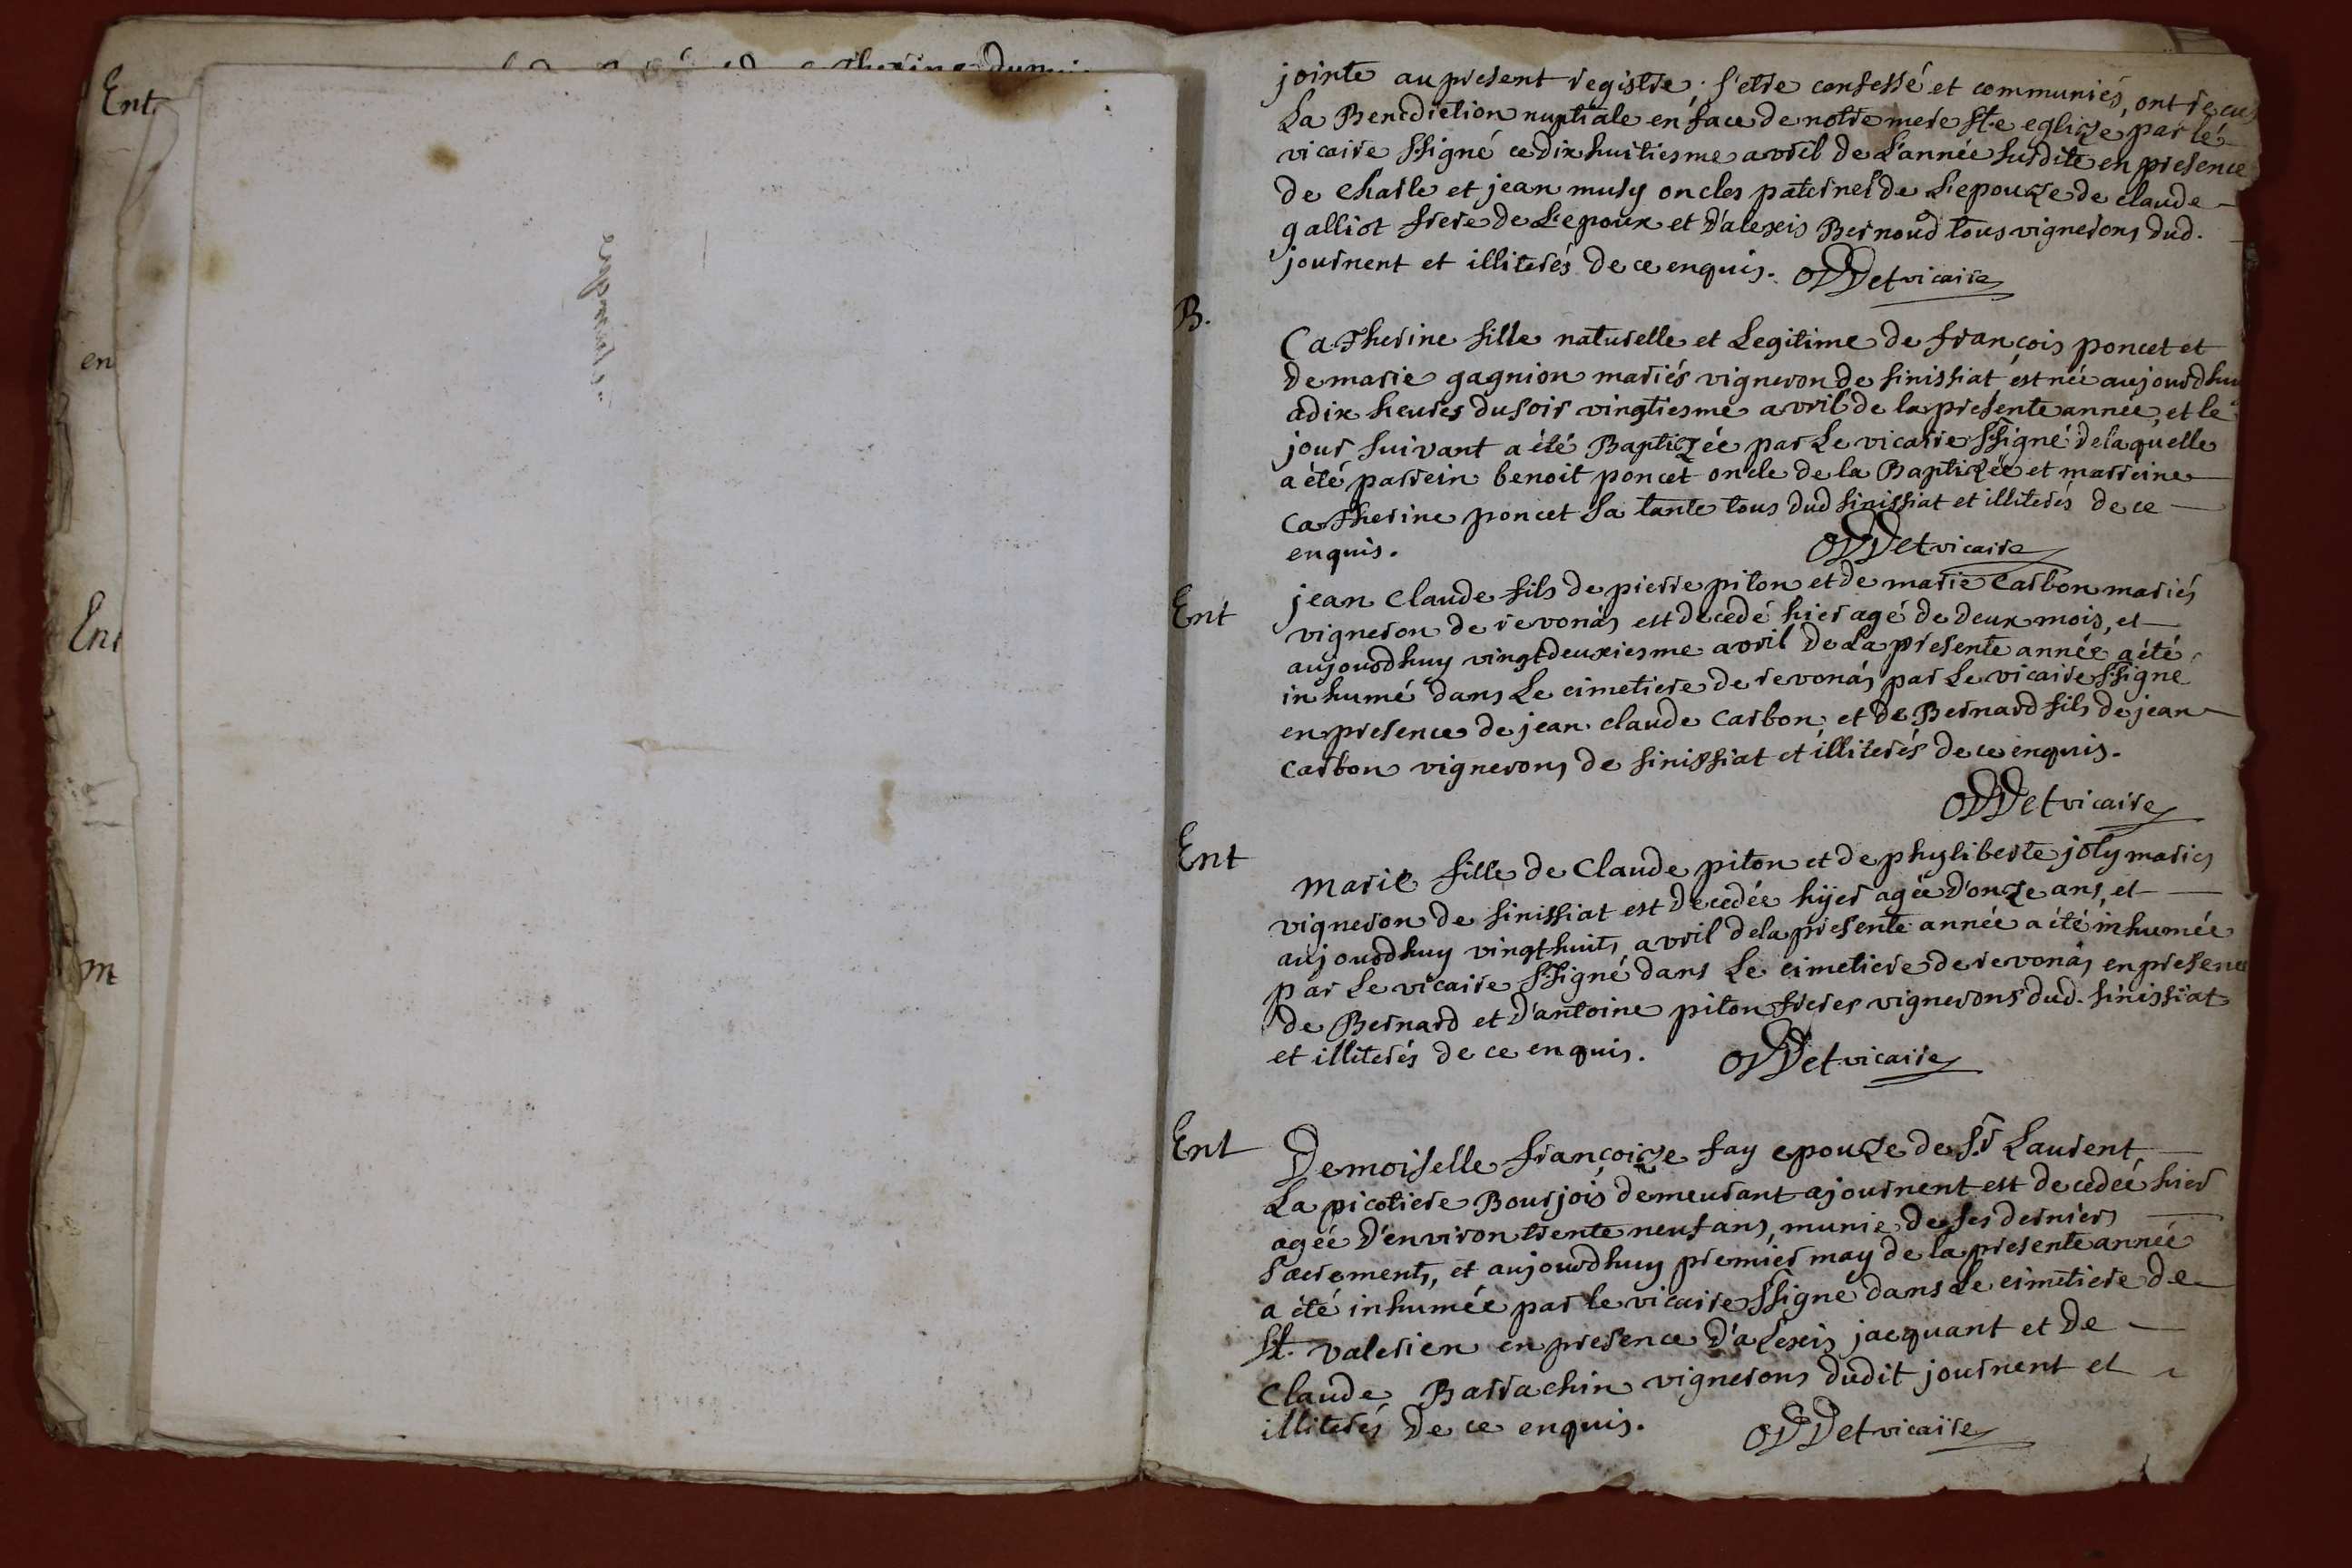 Ent
en
Ent
m
jointe au present registre. s'etre confessé et communiés, ont recus
La Benediction nuptiale en face de notre mere Ste eglize par le
vicaire ssigné ce dix huitiesme avril de L'année susdite en presence
de Charle et jean musy oncles paternel de L'epouze de claude
galliot frere de L'epoux et d'alexis Bernoud tous vignerons dud.
journent et illiterés de ce enquis. ODDet vicaire
B.
Catherine fille naturelle et Legitime de françois poncet et
de marie gagnion mariés vigneron de sinissiat est née aujourdhuy
a dix heures du soir vingtiesme avril de la presente année, et le
jour suivant a été Baptizée par Le vicaire ssigné de laquelle
a été parrein benoit poncet oncle de la Baptizée et marreine
Catherine poncet sa tante tous dud sinissiat et illiterés de ce
enquis. ODDet vicaire
Ent
jean Claude fils de pierre piton et de marie Carbon mariés
vigneron de revonás est decedé hier agé de deux mois, et
aujourdhuy vingtdeuxiesme avril de La presente année a été
inhumé dans Le cimetiere de revonás par Le vicaire ssigné
en presence de jean claude Carbon et de Bernard fils de jean
Carbon vignerons de sinissiat et illiterés de ce enquis.
ODDet vicaire
Ent
marie fille de Claude piton et de phyliberte joly mariés
vigneron de sinissiat est decedée hijer agée d'onze ans, et
aujourdhuy vingthuit avril dela presente année a été inhumée
par Le vicaire ssigné dans Le cimetiere de revonás en presence
de Bernard et d'antoine piton freres vignerons dud. sinissiat
et illiterés de ce enquis. ODDet vicaire
Ent
Demoiselle françoize fay epouze de Sr Laurent
La picotiere Bourjois demeurant a journent est decedeé hier
ageé d'environ trente neuf ans, munie de ses derniers
sacrements, et aujourdhuy premier may de la presente année
a été inhumée par le vicaire ssigné dans Le cimetiere de
St. valerien en presence d'alexis jacquant et de
Claude Barrachin vignerons dudit journent et
illiterés de ce enquis. ODDet vicaire